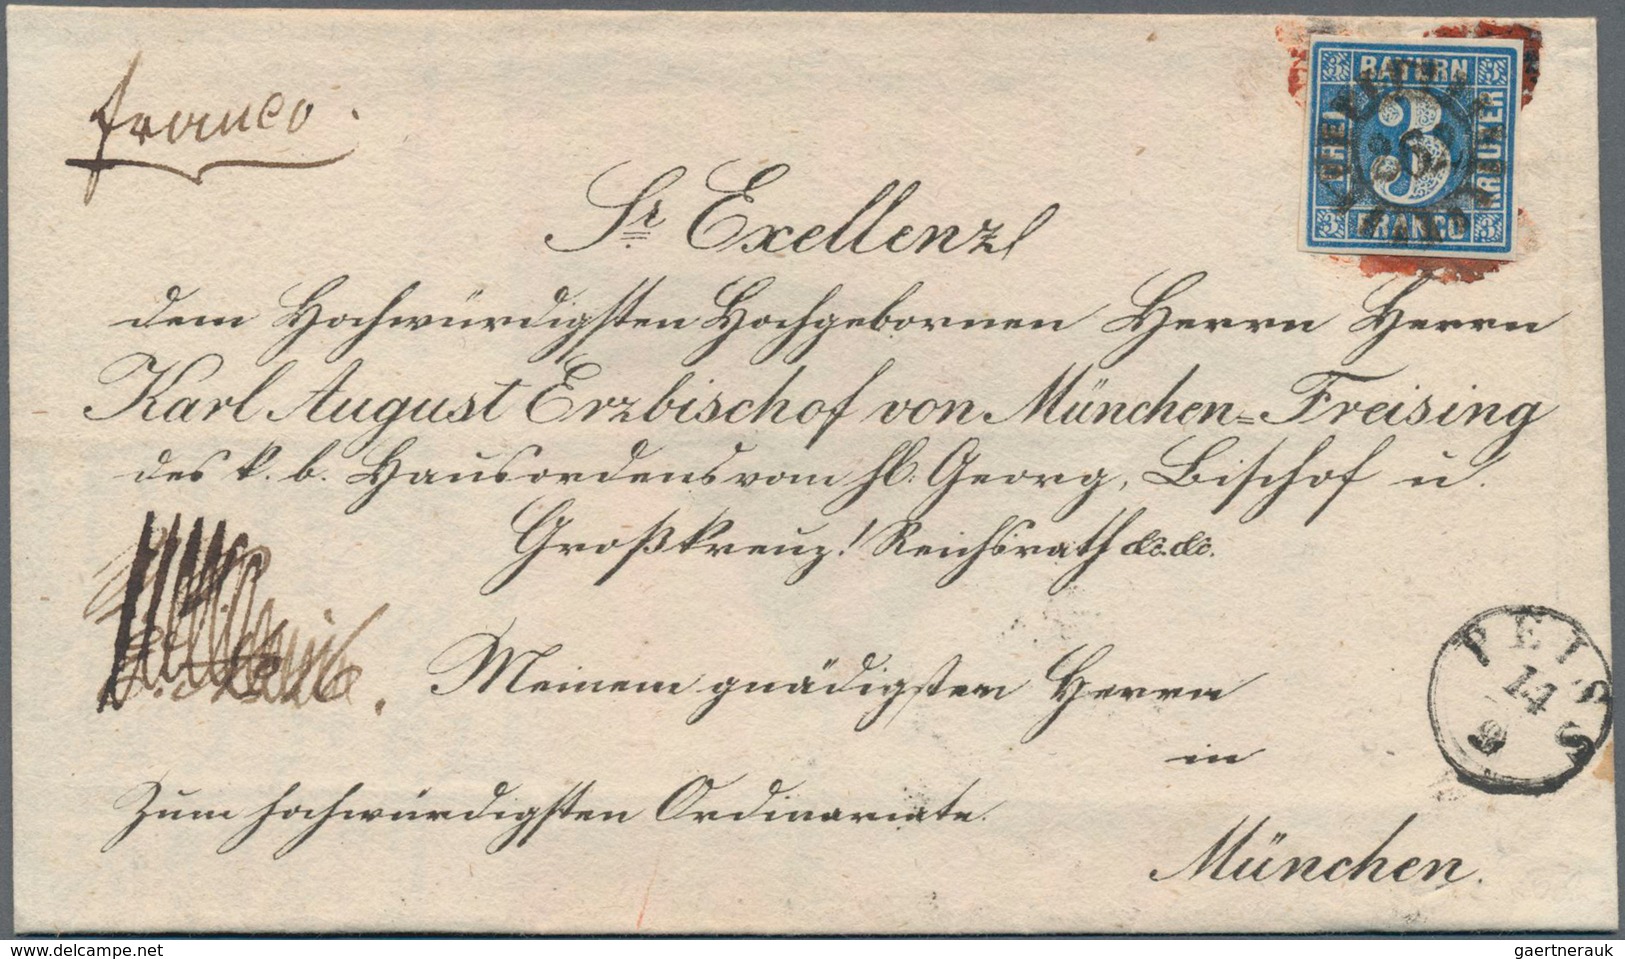 franco.
BAYERN
3 3
DREI
3
KREUZER
3 3
FRANCO
Sr Exellenz
dem Hochwürdigsten Hochgebornen Herrn Herrn
Karl August Erzbischof von München=Freising
des k. b. Hausordens vom hl. Georg, Bischof u.
Großkreuz! Reichsrath &c. &c.
Meinem gnädigsten Herrn
in
Zum hochwürdigsten Ordinariate.
München.
PEISS
14
9
delcampe.net
gaertnerauk